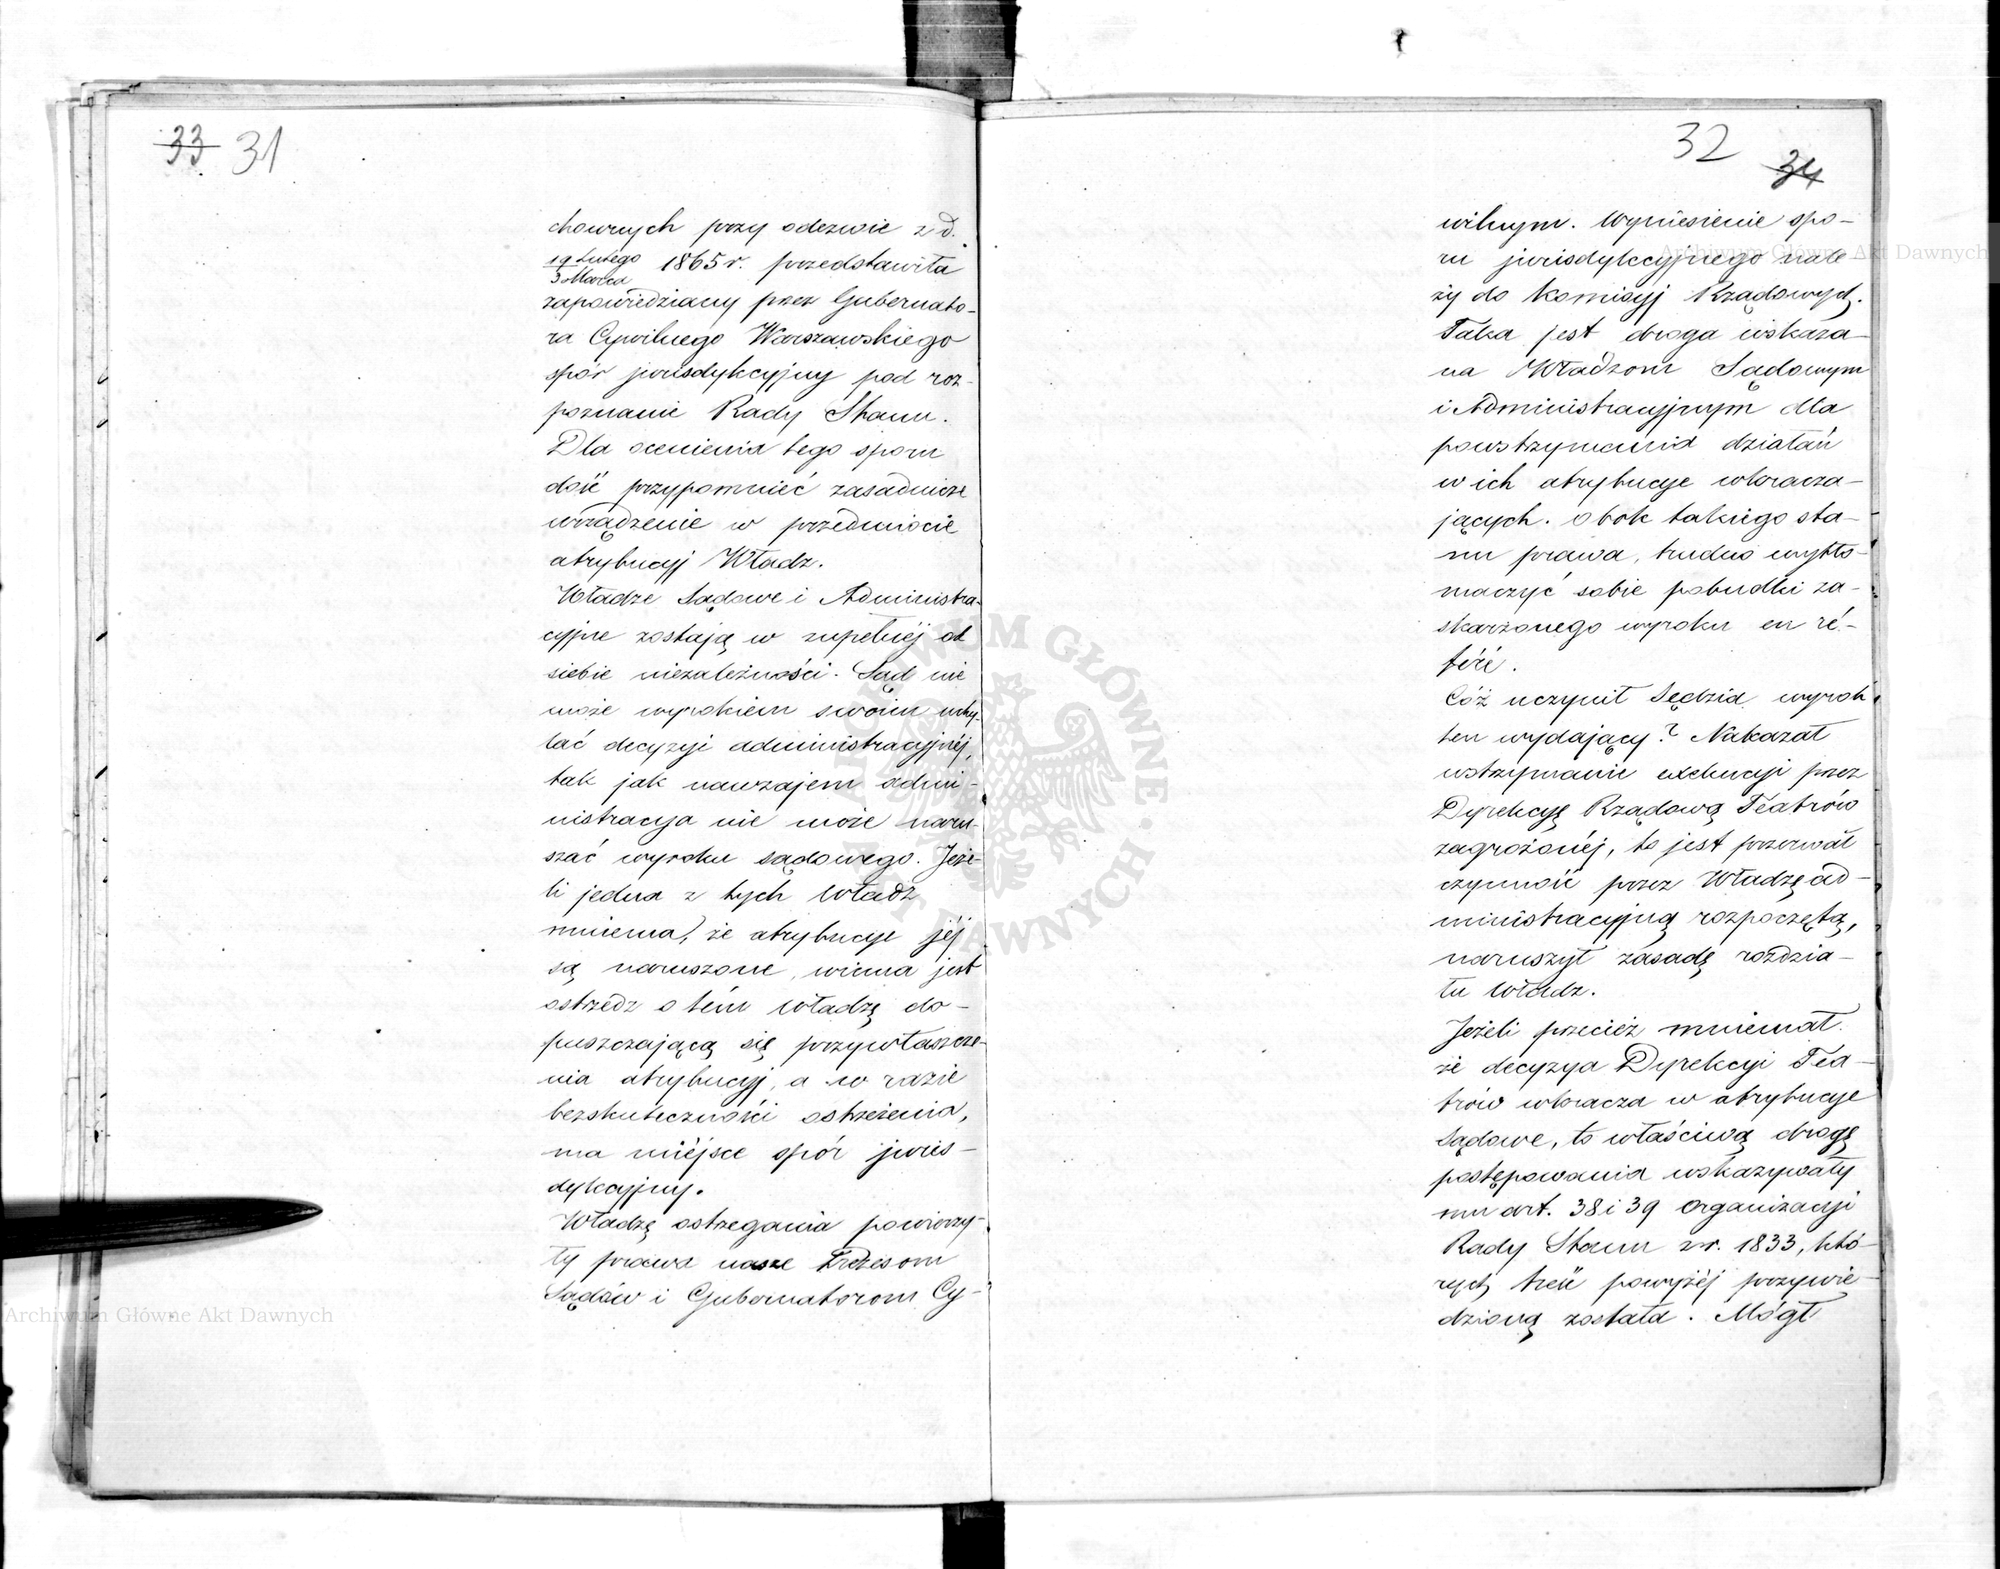 33 31
chownych przy odezwie z d.
19 Lutego
3 Marca 1865 r. przedstawiła
zapowiedziany przez Gubernato-
ra Cywilnego Warszawskiego
spór jurisdykcyjny pod roz-
poznanie Rady Stanu.
Dla ocenienia tego sporu
dość przypomnieć zasadnicze
urządzenie w przedmiocie
atrybucyj Władz.
Władze Sądowe i Administra-
cyjne zostają w zupełnéj od
siebie niezależności. Sąd nie
może wyrokiem swoim uchy-
lać decyzyi administracyjnéj,
tak jak nawzajem admi-
nistracya nie może naru-
szać wyroku sądowego. Jeże-
li jedna z tych Władz
mniema, że atrybucye jéj
są naruszone, winna jest
ostrzedz o tém Władzę do-
puszczającą się przywłaszcze-
nia atrybucyj, a w razie
bezskuteczności ostrzeżenia,
ma miéjsce spór juris-
dykcyjny.
Władzę ostrzegania powierzy-
ły prawa nasze Prezesom
Sądów i Gubernatorom Cy-
32 34
wilnym. Wyniesienie spo-
ru jurisdykcyjnego nale
ży do Komisyj Rządowych.
Taka jest droga wskaza-
na Władzom Sądowym
i Administracyjnym dla
powstrzymania działań
w ich atrybucye wkracza-
jących. Obok takiego sta-
nu prawa, trudno wytło-
maczyć sobie pobudki za-
skarżonego wyroku en ré-
féré.
Cóż uczynił Sędzia wyrok
ten wydający? Nakazał
wstrzymanie exekucyi przez
Dyrekcyę Rządową Teatrów
zagrożonéj, to jest przerwał
czynność przez Władzę ad-
ministracyjną rozpoczętą,
naruszył zasadę rozdzia-
łu Władz.
Jeżeli przecież mniemał
że decyzya Dyrekcyi Tea-
trów wkracza w atrybucye
Sądowe, to właściwą drogę
postępowania wskazywały
mu art. 38 i 39 Organizacyi
Rady Stanu z r. 1833, któ-
rych treść powyżéj przywie-
dzioną została. Mógł
Archiwum Główne Akt Dawnych
Archiwum Główne Akt Dawnych
ARCHIWUM GŁÓWNE · AKT DAWNYCH ·